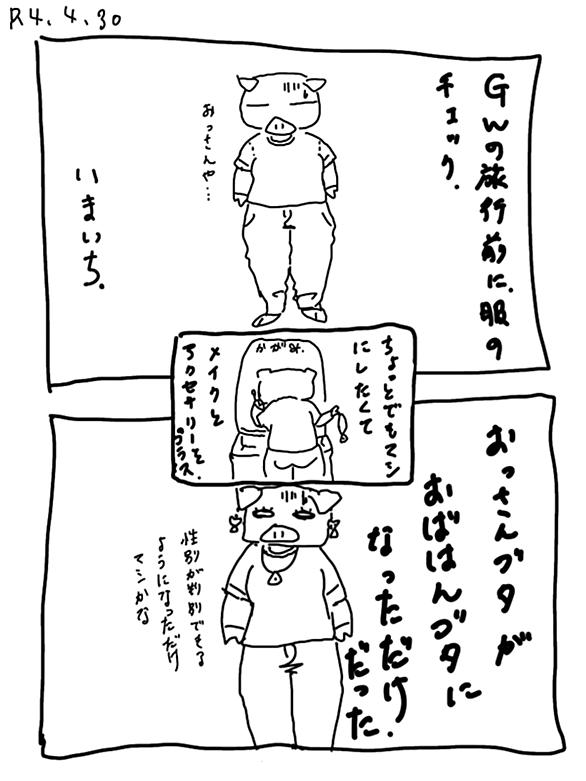 R4.4.30
GWの旅行前に、服の
チェック.
おっさんや…
いまいち.
ちょっとでもマシ
にしたくて
かがみ.
メイクと
アクセサリーを
プラス.
おっさんブタが
おばはんブタに
なっただけ.
だった.
性別が判別できる
ようになっただけ
マシかな